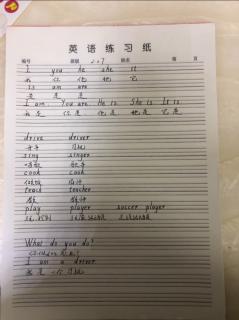 英语练习纸
编号 班级 207 姓名 第 页
I you he she it
我 你 他 她 它
is am are
是 是 是
I am You are He is She is It is
我是 你是 他是 她是 它是
drive driver
开车 司机
sing singer
唱歌 歌手
cook cook
做饭 厨师
teach teacher
教 教师
play player soccer player
What do you do?
I am a driver.
我是一个司机